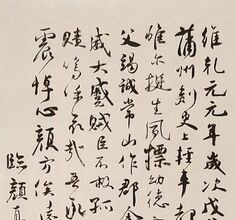 維乾元元年歲次戊
蒲州刺史上輕車都
惟爾挺生夙摽幼德
父竭誠常山作郡余
威大蹙賊臣不救孤
嗚呼哀哉吾承
震悼心顏方俟遠
臨顏真